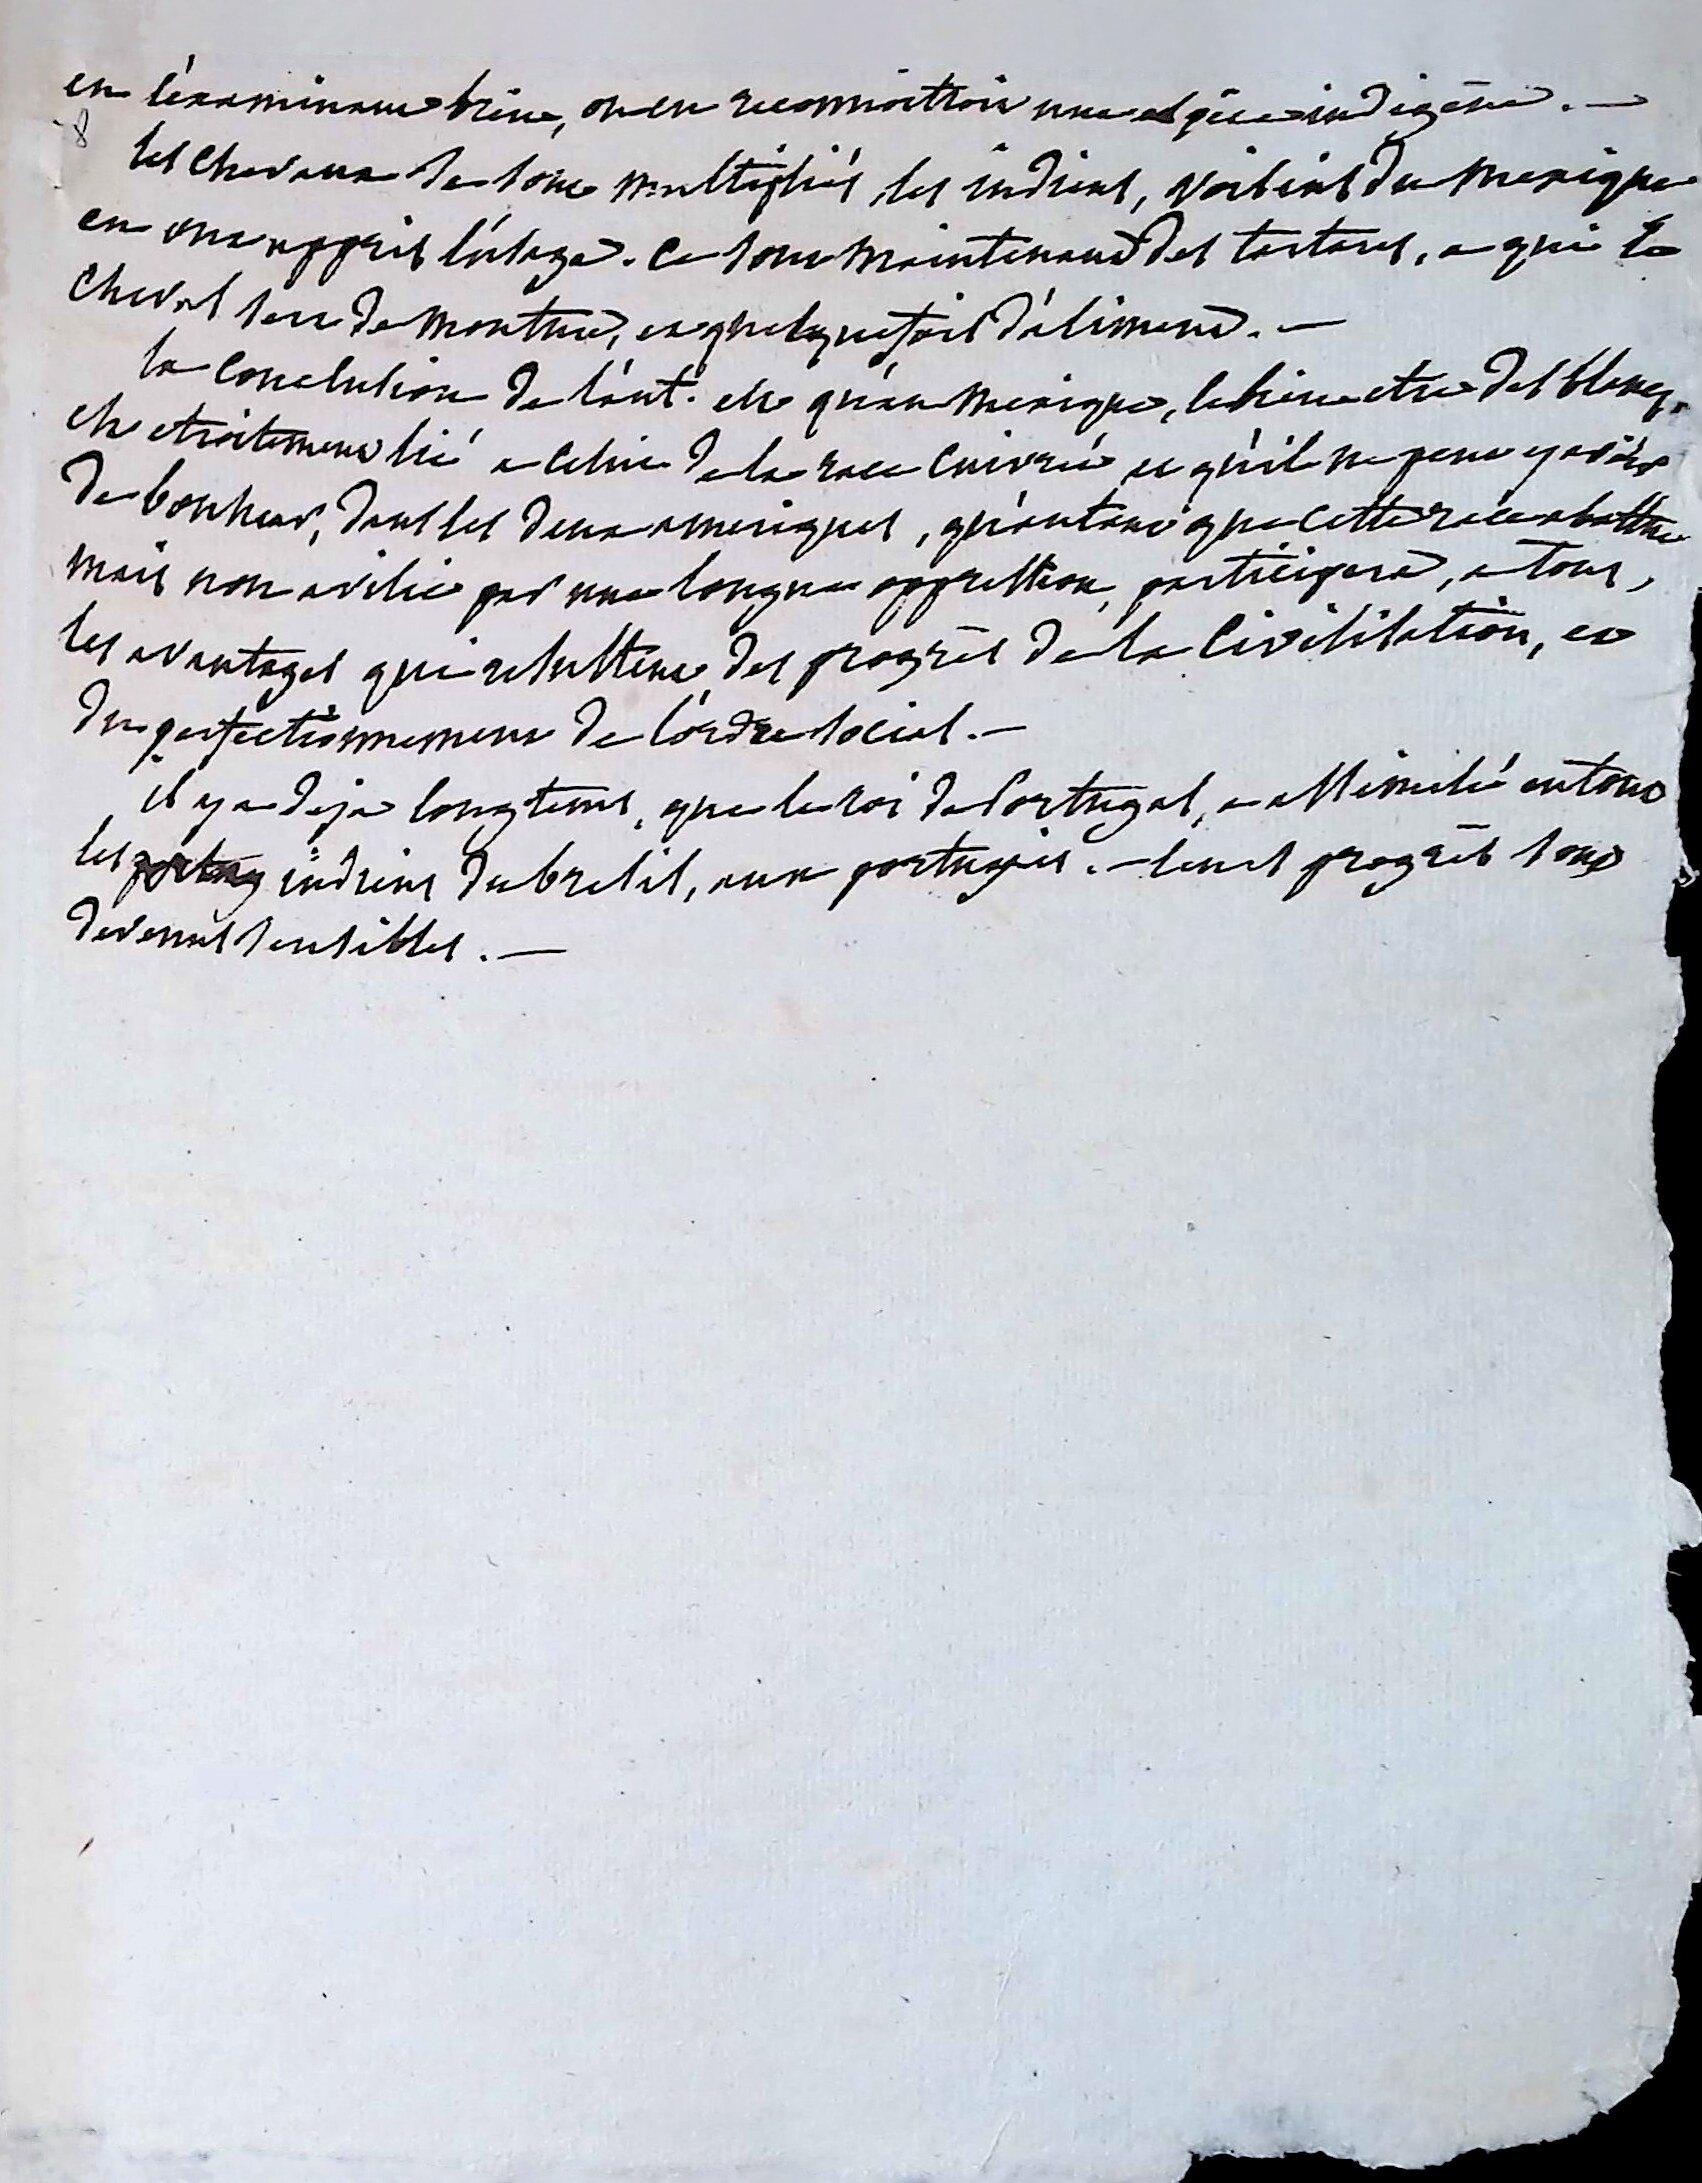 en l'examinant bien, on en reconnoitroit une espèce indigène. —
les chevaux se sont multipliés, les indiens, voisins du mexique
en ont appris l'usage. Ce sont maintenant des tartares, a qui le
cheval sert de monture, et quelquefois d'aliment. —
la conclusion de l'aut. est qu'au mexique, le bien etre des blancs,
est etroitement lié a celui de la race cuivrée et qu'il ne peut y avoir
de bonheur, dans les deux ameriques, qu'autant que cette race abattue
mais non avilie par une longue oppression, participera, a tous,
les avantages qui resultent, des progrès de la civilisation, et
du perfectionnement de l'ordre social. —
il y a deja longtems, que le roi de Portugal, a assimilé en tout
les indiens du bresil, aux portugais. — leurs progrès sont
devenus sensibles. —